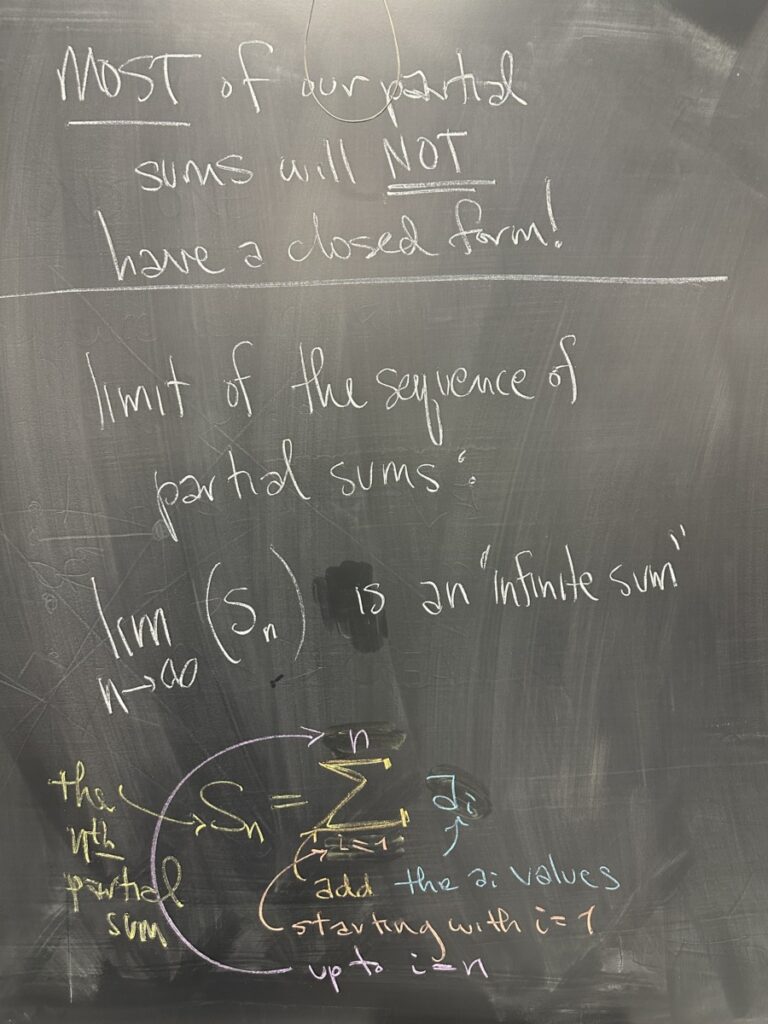 MOST of our partial
sums will NOT
have a closed form!
limit of the sequence of
partial sums:
lim (Sn) is an "infinite sum"
n→∞
n
the
Sn = Σ ai
nth
i=1
partial
add the ai values
sum
starting with i=1
up to i=n